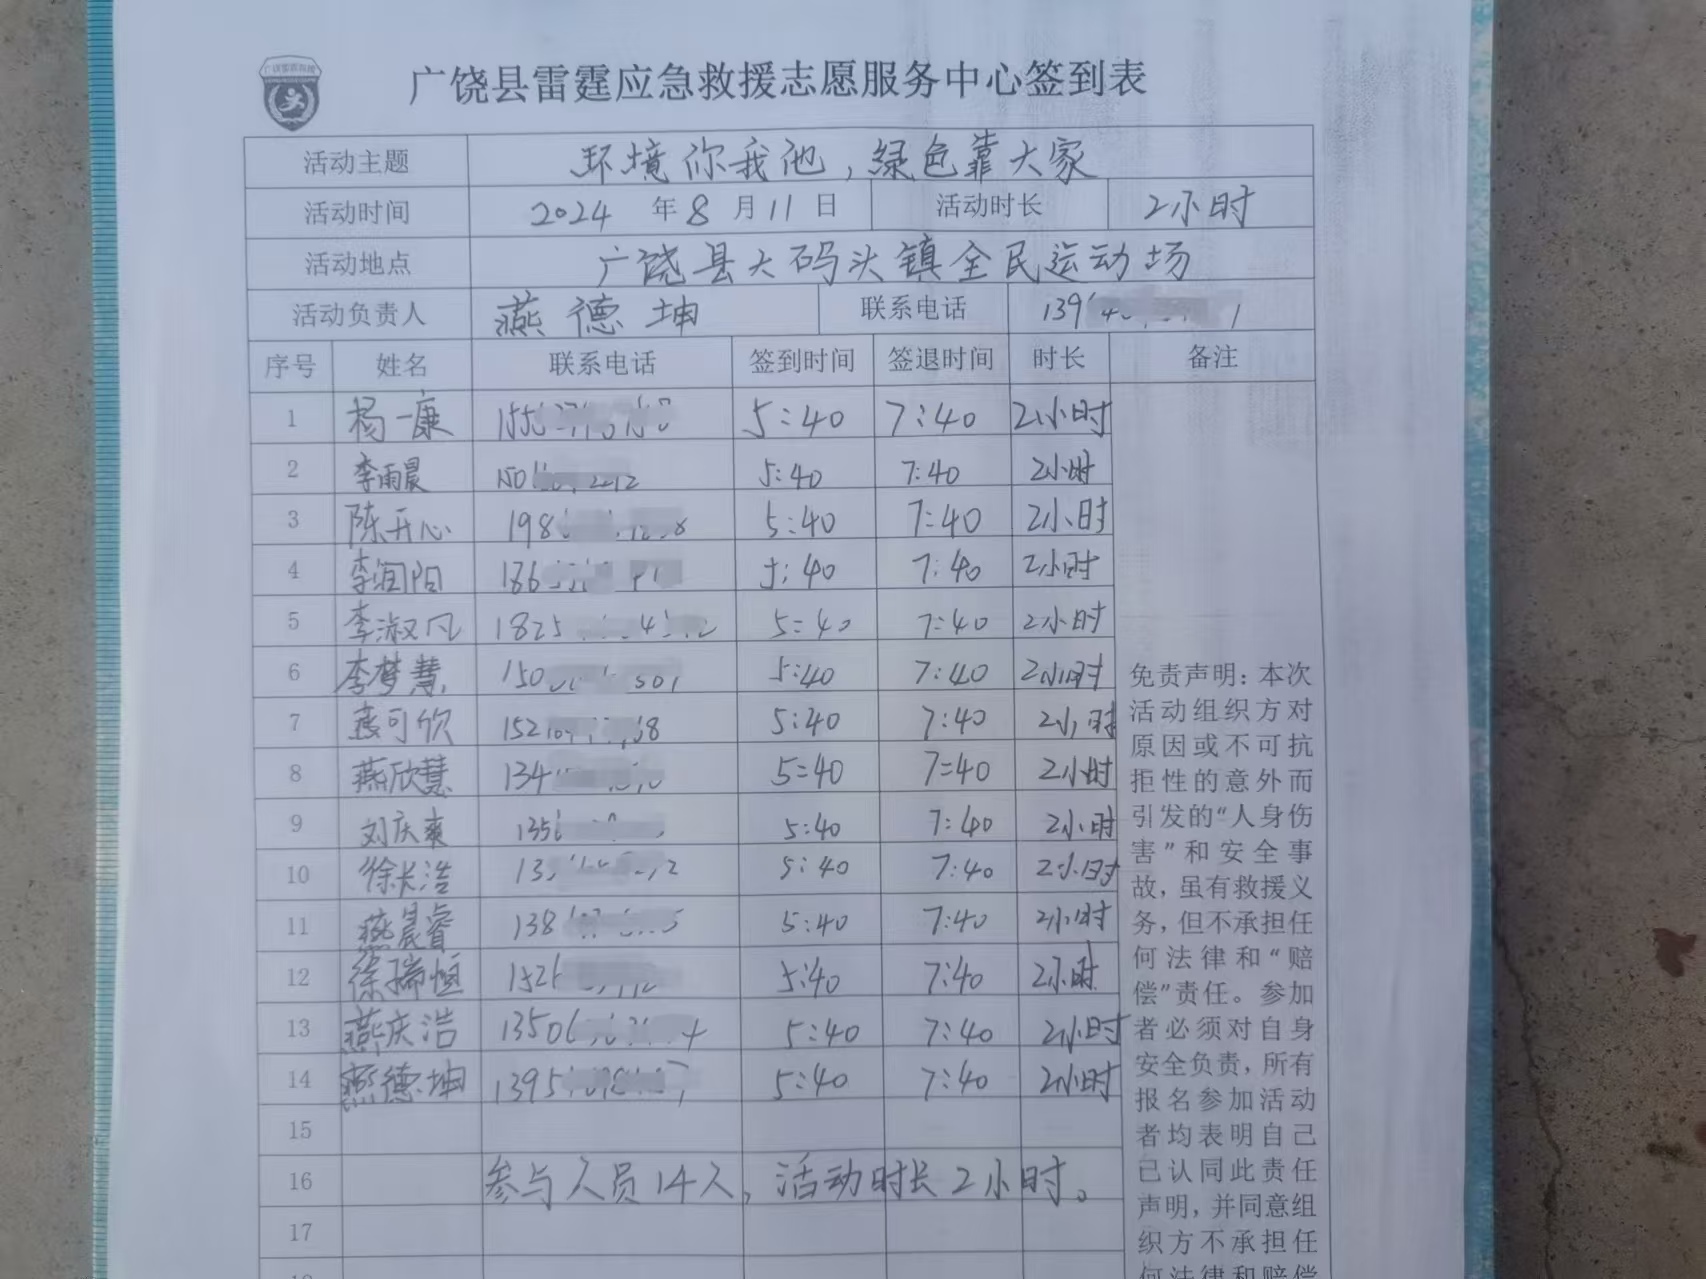 广饶县雷霆应急救援志愿服务中心签到表
活动主题 环境你我他，绿色靠大家
活动时间 2024 年 8 月 11 日 活动时长 2小时
活动地点 广饶县大码头镇全民运动场
活动负责人 燕德坤 联系电话 139
序号 姓名 联系电话 签到时间 签退时间 时长 备注
1 杨一康 155 5:40 7:40 2小时
2 李雨晨 150 5:40 7:40 2小时
3 陈开心 198 5:40 7:40 2小时
4 李润阳 186 5:40 7:40 2小时
5 李淑凡 1825 5:40 7:40 2小时
6 李梦慧 150 5:40 7:40 2小时
7 燕可欣 152 5:40 7:40 2小时
8 燕欣慧 134 5:40 7:40 2小时
9 刘庆爽 135 5:40 7:40 2小时
10 徐长浩 13 5:40 7:40 2小时
11 燕晨睿 138 5:40 7:40 2小时
12 徐瑞恒 152 5:40 7:40 2小时
13 燕庆浩 1350 5:40 7:40 2小时
14 燕德坤 1395 5:40 7:40 2小时
15
16 参与人员14人，活动时长2小时。
17
免责声明：本次
活动组织方对
原因或不可抗
拒性的意外而
引发的“人身伤
害”和安全事
故，虽有救援义
务，但不承担任
何法律和“赔
偿”责任。参加
者必须对自身
安全负责，所有
报名参加活动
者均表明自己
已认同此责任
声明，并同意组
织方不承担任
何法律和赔偿